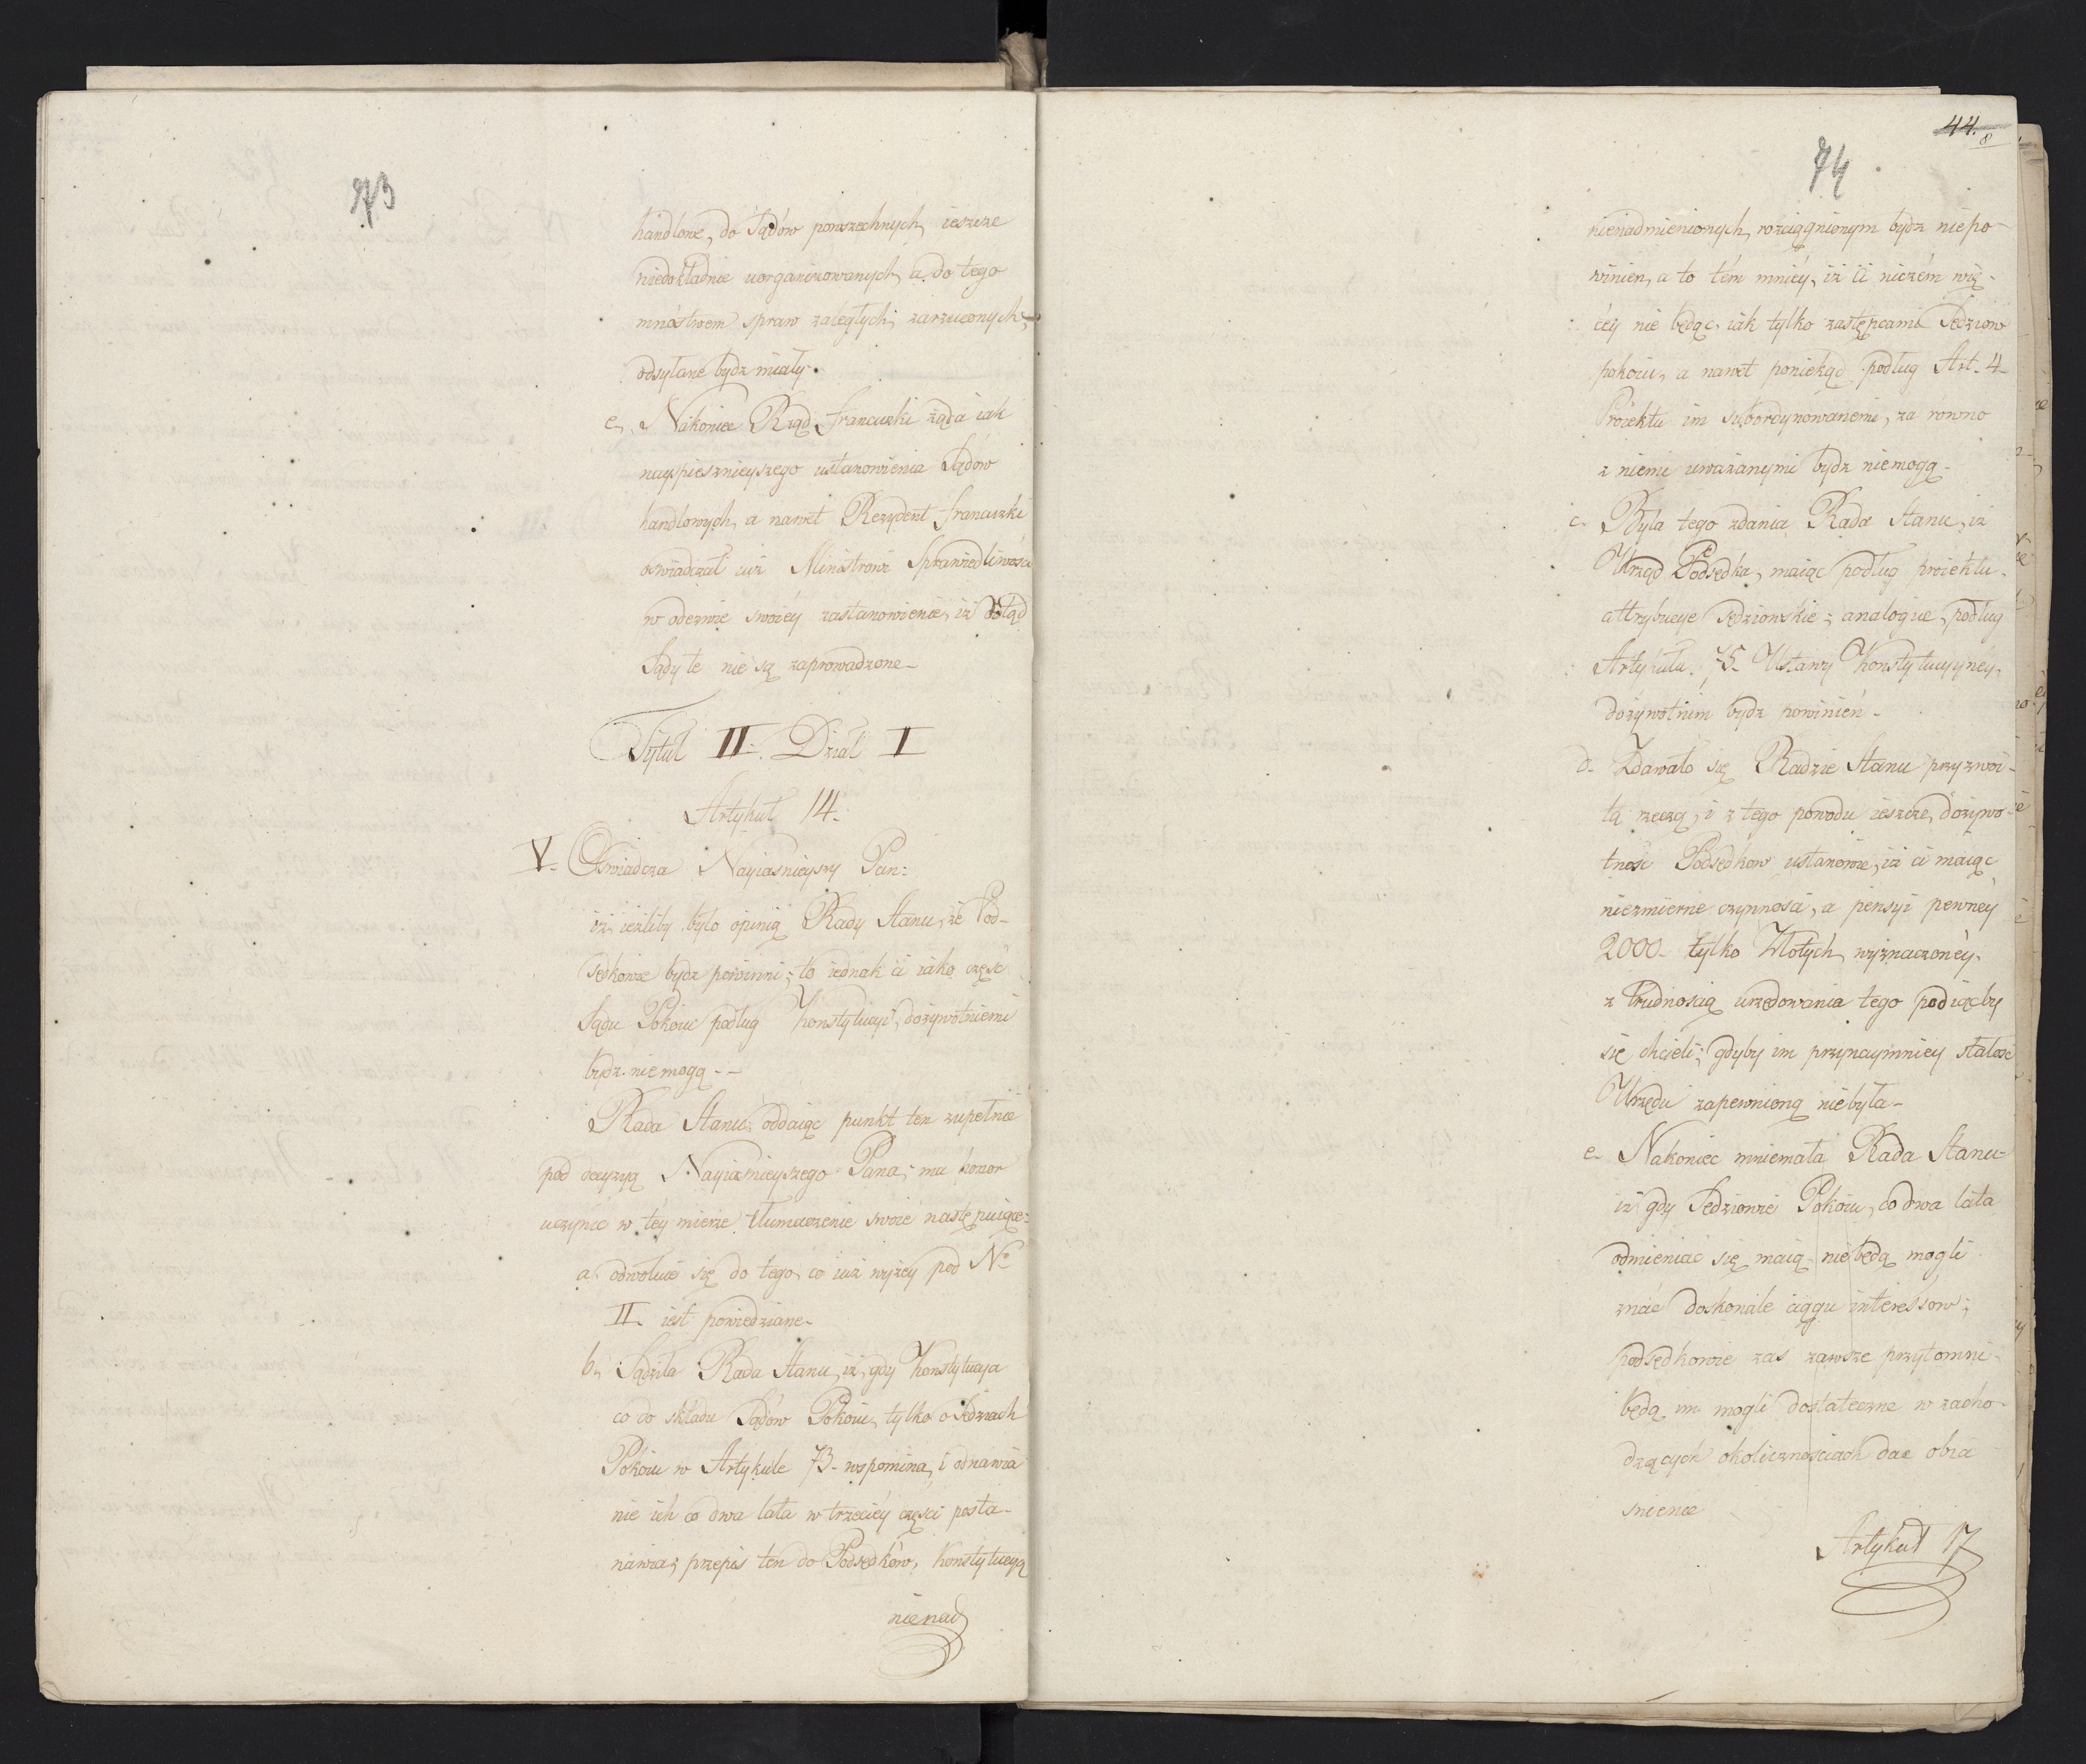 73
handlowe, do Sądów powszechnych, ieszcze
niedokładnie uorganizowanych, a do tego
mnóstwem spraw zaległych, zarzuconych,
odsyłane bydz miały.
e. Nakoniec Rząd francuzki żąda iak
nayspiesznieyszego ustanowienia Sądów
handlowych, a nawet Rezydent francuzki
oswiadczał iuż Ministrowi Sprawiedliwości
w odezwie swoiéy zastanowienie, iż dotąd
Sądy te nie są zaprowadzone-
Tytuł II. Dział I
Artykuł 14.
V. Oświadcza Nayiasnieyszy Pan:
iż, ieżliby było opinią Rady Stanu, że Pod-
sędkowie bydz powinni; to iednak ci iako część
Sądu Pokoiu podług Konstytucyi, dożywotniemi
bydz niemogą --
Rada Stanu, oddaiąc punkt ten zupełnie
pod decyzyą Nayiasnieyszego Pana, ma honor
uczynić w téy mierze tłumaczenie swoie następuiące:
a. odwołuie się do tego, co iuż wyżey pod No
II. iest powiedziane-
b. Sądziła Rada Stanu, iż gdy Konstytucya
co do składu Sądów Pokoiu, tylko o Sędziach
Pokoiu w Artykule 73- wspomina, i odnawia
nie ich co dwa lata w trzeciéy części posta-
nawia; przepis ten do Podsędków, Konstytucyą
nienad
44. 8
74
nienadmienionych, rozciągnionym bydz niepo-
winien, a to tém mniéy, iż ci niczém wię-
céy nie będąc, iak tylko zastępcami Sędziow
pokoiu, a nawet poniekąd podług Art. 4-
Proiektu im subordynowanemi, za rowno
z niemi uważanymi bydz niemogą-
c. Była tego zdania Rada Stanu, iż
Urząd Podsędka, maiąc podług proiektu
attrybucye sędziowskie; analogue, podług
Artykułu 75- Ustawy Konstytucyynéy,
dożywotnim bydz powinién-
d. Zdawało się Radzie Stanu przyzwoi-
tą rzeczą, i z tego powodu ieszcze, dożywo-
tnośc Podsędkow ustanowic, iż ci maiąc
niezmierne czynności, a pensyi pewnéy
2000- tylko Złotych wyznaczonéy,
z trudnoscią urzędowania tego podiąćby
się chcieli; gdyby im przynaymniey stałosc
Urzędu zapewnioną niebyła-
e. Nakoniec mniemała Rada Stanu-
iż gdy Sędziowie Pokoiu, co dwa lata
odmieniac się maią, niebędą mogli
znać doskonale ciągu interessow;
podsędkowie zas zawsze przytomni-
będą im mogli dostateczne w zacho-
dzących okolicznościach dac obia
snienie
Artykuł 17